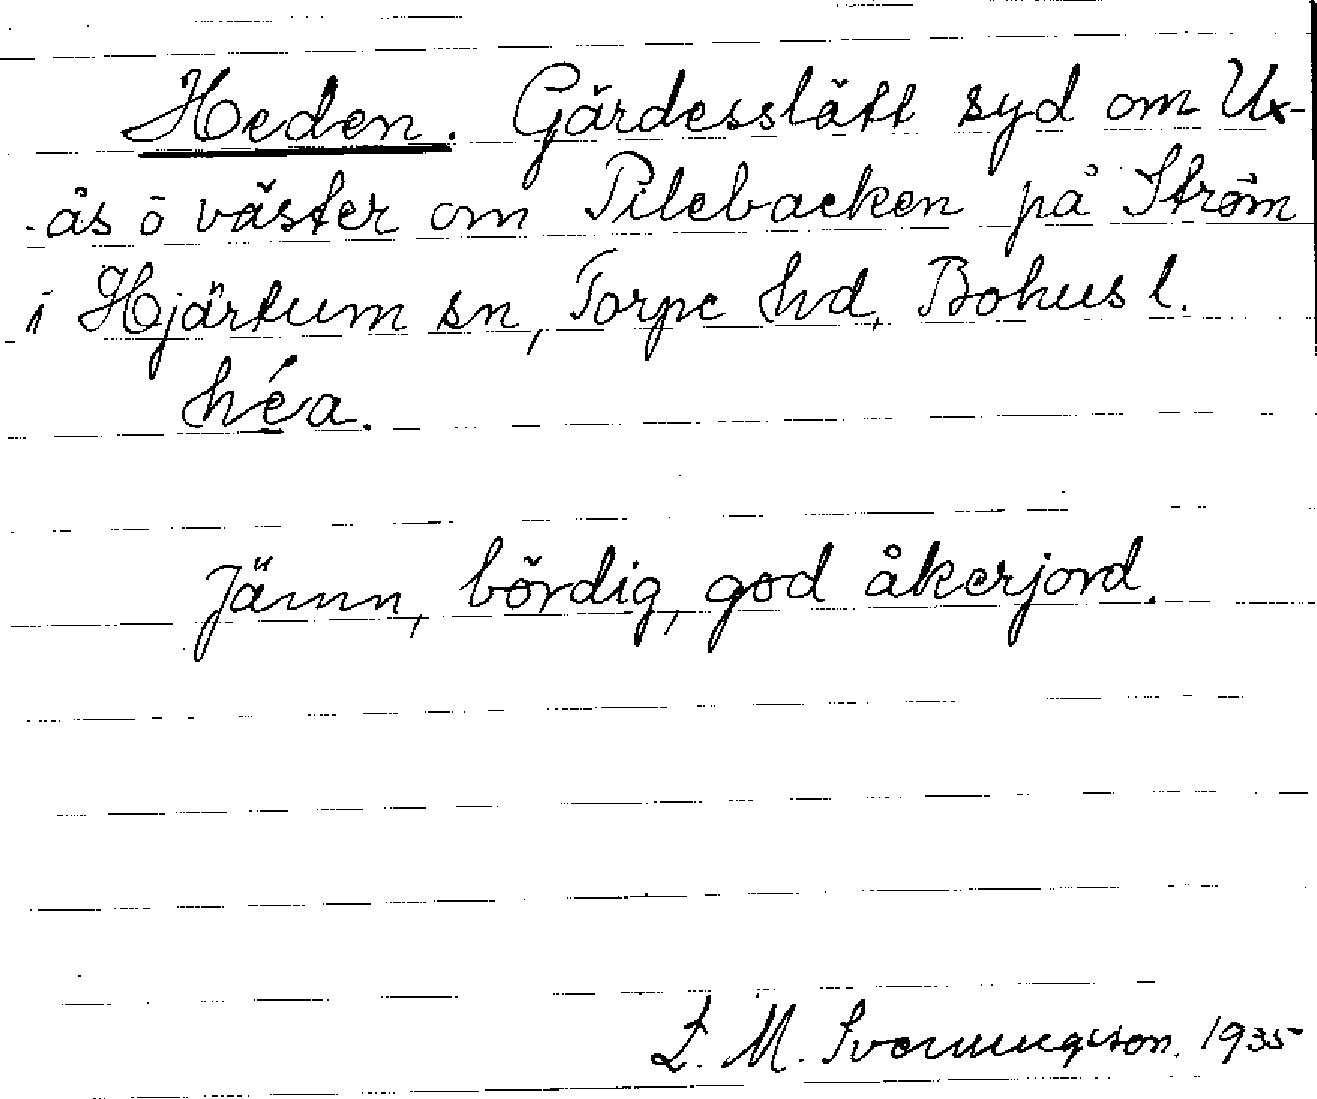 Heden. Gärdesslätt syd om Ux-
ås ö väster om Pilebacken på Ström
i Hjärtum sn, Torpe hd, Bohus l.
héa.
Jämn, bördig, god åkerjord.
L. M. Svenungsson. 1935